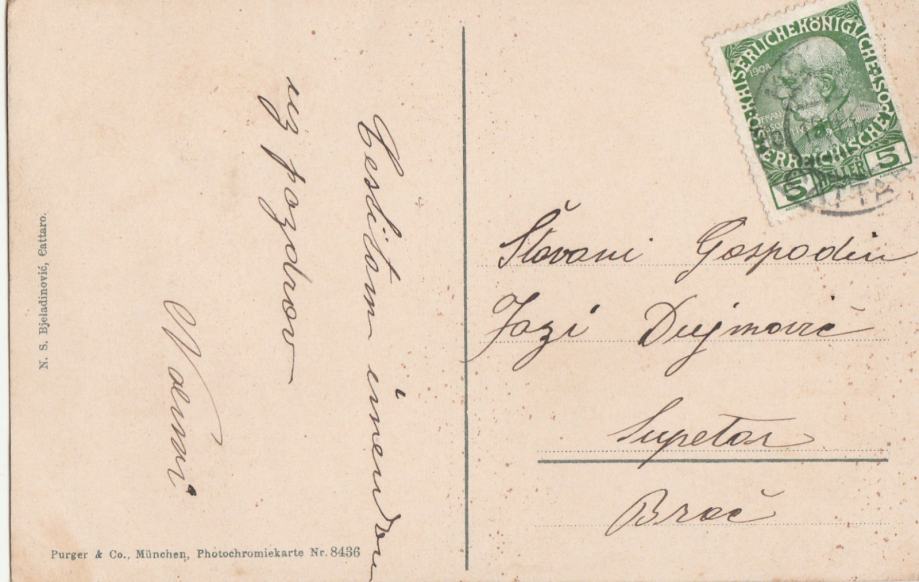 Čestitam imendan
uz pozdrav
N. S. Bjeladinović, Cattaro.
Purger & Co., München, Photochromiekarte Nr. 8436
KAISERLICHEKÖNIGLICHE
ÖSTERREICHISCHE
1908
5 HELLER 5
Štovani Gospodin
Jozi Dujmović
Supetar
Brač